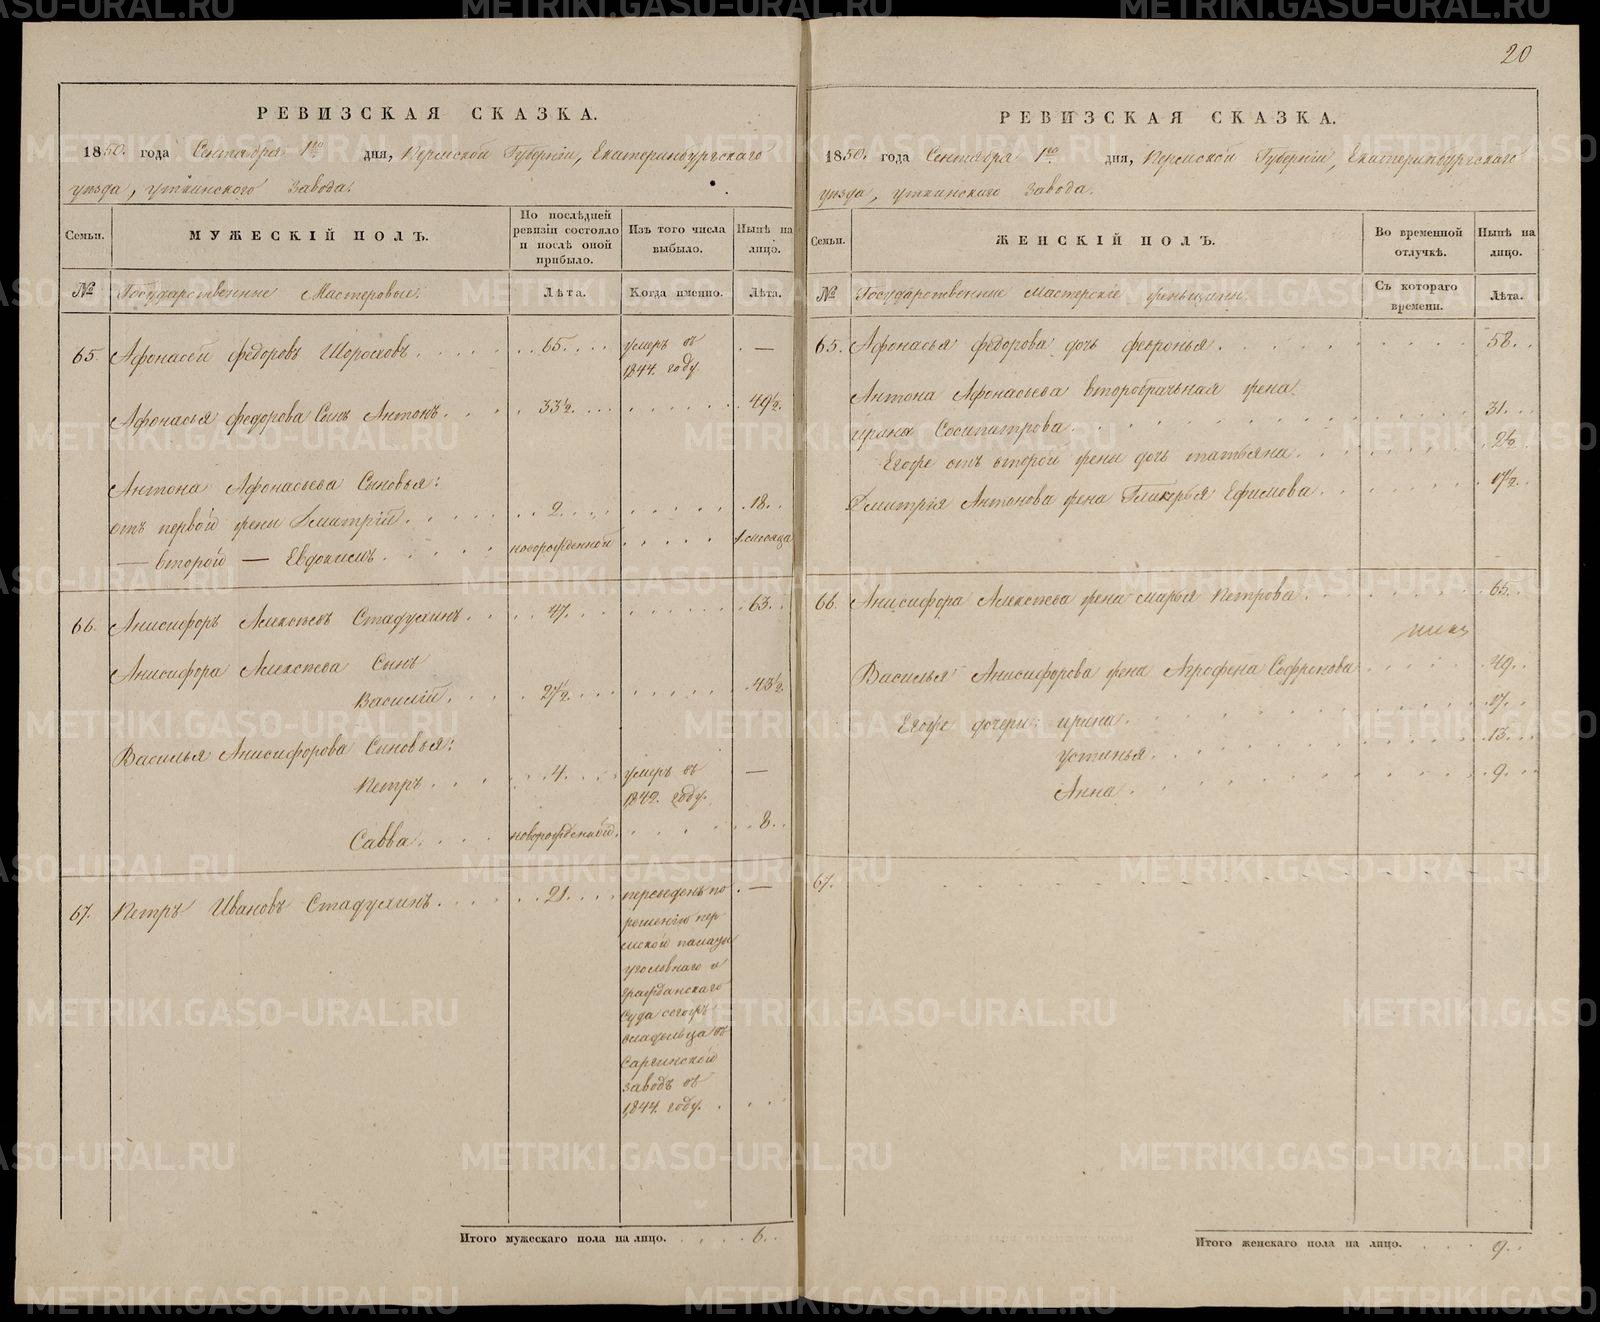 20
РЕВИЗСКАЯ СКАЗКА.
1850. года Сентября 1го дня, Пермской Губерніи, Екатеринбургскаго
уѣзда, Уткинского Завода.
Семьи.
МУЖЕСКІЙ ПОЛЪ.
По послѣдней ревизіи состояло и послѣ оной прибыло.
Изъ того числа выбыло.
Нынѣ на лицо.
№
Государственные Мастеровые.
Лѣта.
Когда именно.
Лѣта.
65 Афонасей Федоровъ 65. умеръ въ 1844. году —
Афонасья Федорова Сынъ Антонъ. 33½. 49½.
Антона Афонасьева Сыновья:
отъ первой жены Дмитрій. 2. 18.
— второй — Евдокимъ. новорожденной 1. месяца
66. Анисифоръ Алексѣевъ Стадухинъ. 47. 63.
Анисифора Алексѣева Сынъ
Василій. 27½. 43½.
Василья Анисифорова Сыновья:
Петръ. 4. умеръ въ 1842. году. —
Савва. новорожденный. 8.
67. Петръ Ивановъ Стадухинъ. 21. переведенъ по —
решенію пер
мской палаты
уголовнаго и
гражданскаго
суда
владельца въ
Саргинской
заводъ въ
1844. году.
Итого мужескаго пола на лицо. 6.
РЕВИЗСКАЯ СКАЗКА.
1850. года Сентября 1го дня, Пермской Губерніи, Екатеринбургскаго
уѣзда, Уткинскаго Завода.
Семьи.
ЖЕНСКІЙ ПОЛЪ.
Во временной отлучкѣ.
Нынѣ на лицо.
№
Государственные мастерскіе женьщины
Съ котораго времени.
Лѣта.
65. Афонасья Федорова дочь Февронья. 58.
Антона Афонасьева второбрачьная жена
Ирина Сосипатрова. 31.
Егоже отъ второй жены дочь Татьяна. 2½.
Дмитрія Антонова жена Гликерья Ефимова. 17½.
66. Анисифора Алексѣева жена Марья Петрова. 65.
Василья Анисифорова жена Агрофена Софронова 49.
Егоже дочери: Ирина. 17.
Устинья. 13.
Анна. 9.
67.
Итого женскаго пола на лицо. 9.
METRIKI.GASO-URAL.RU